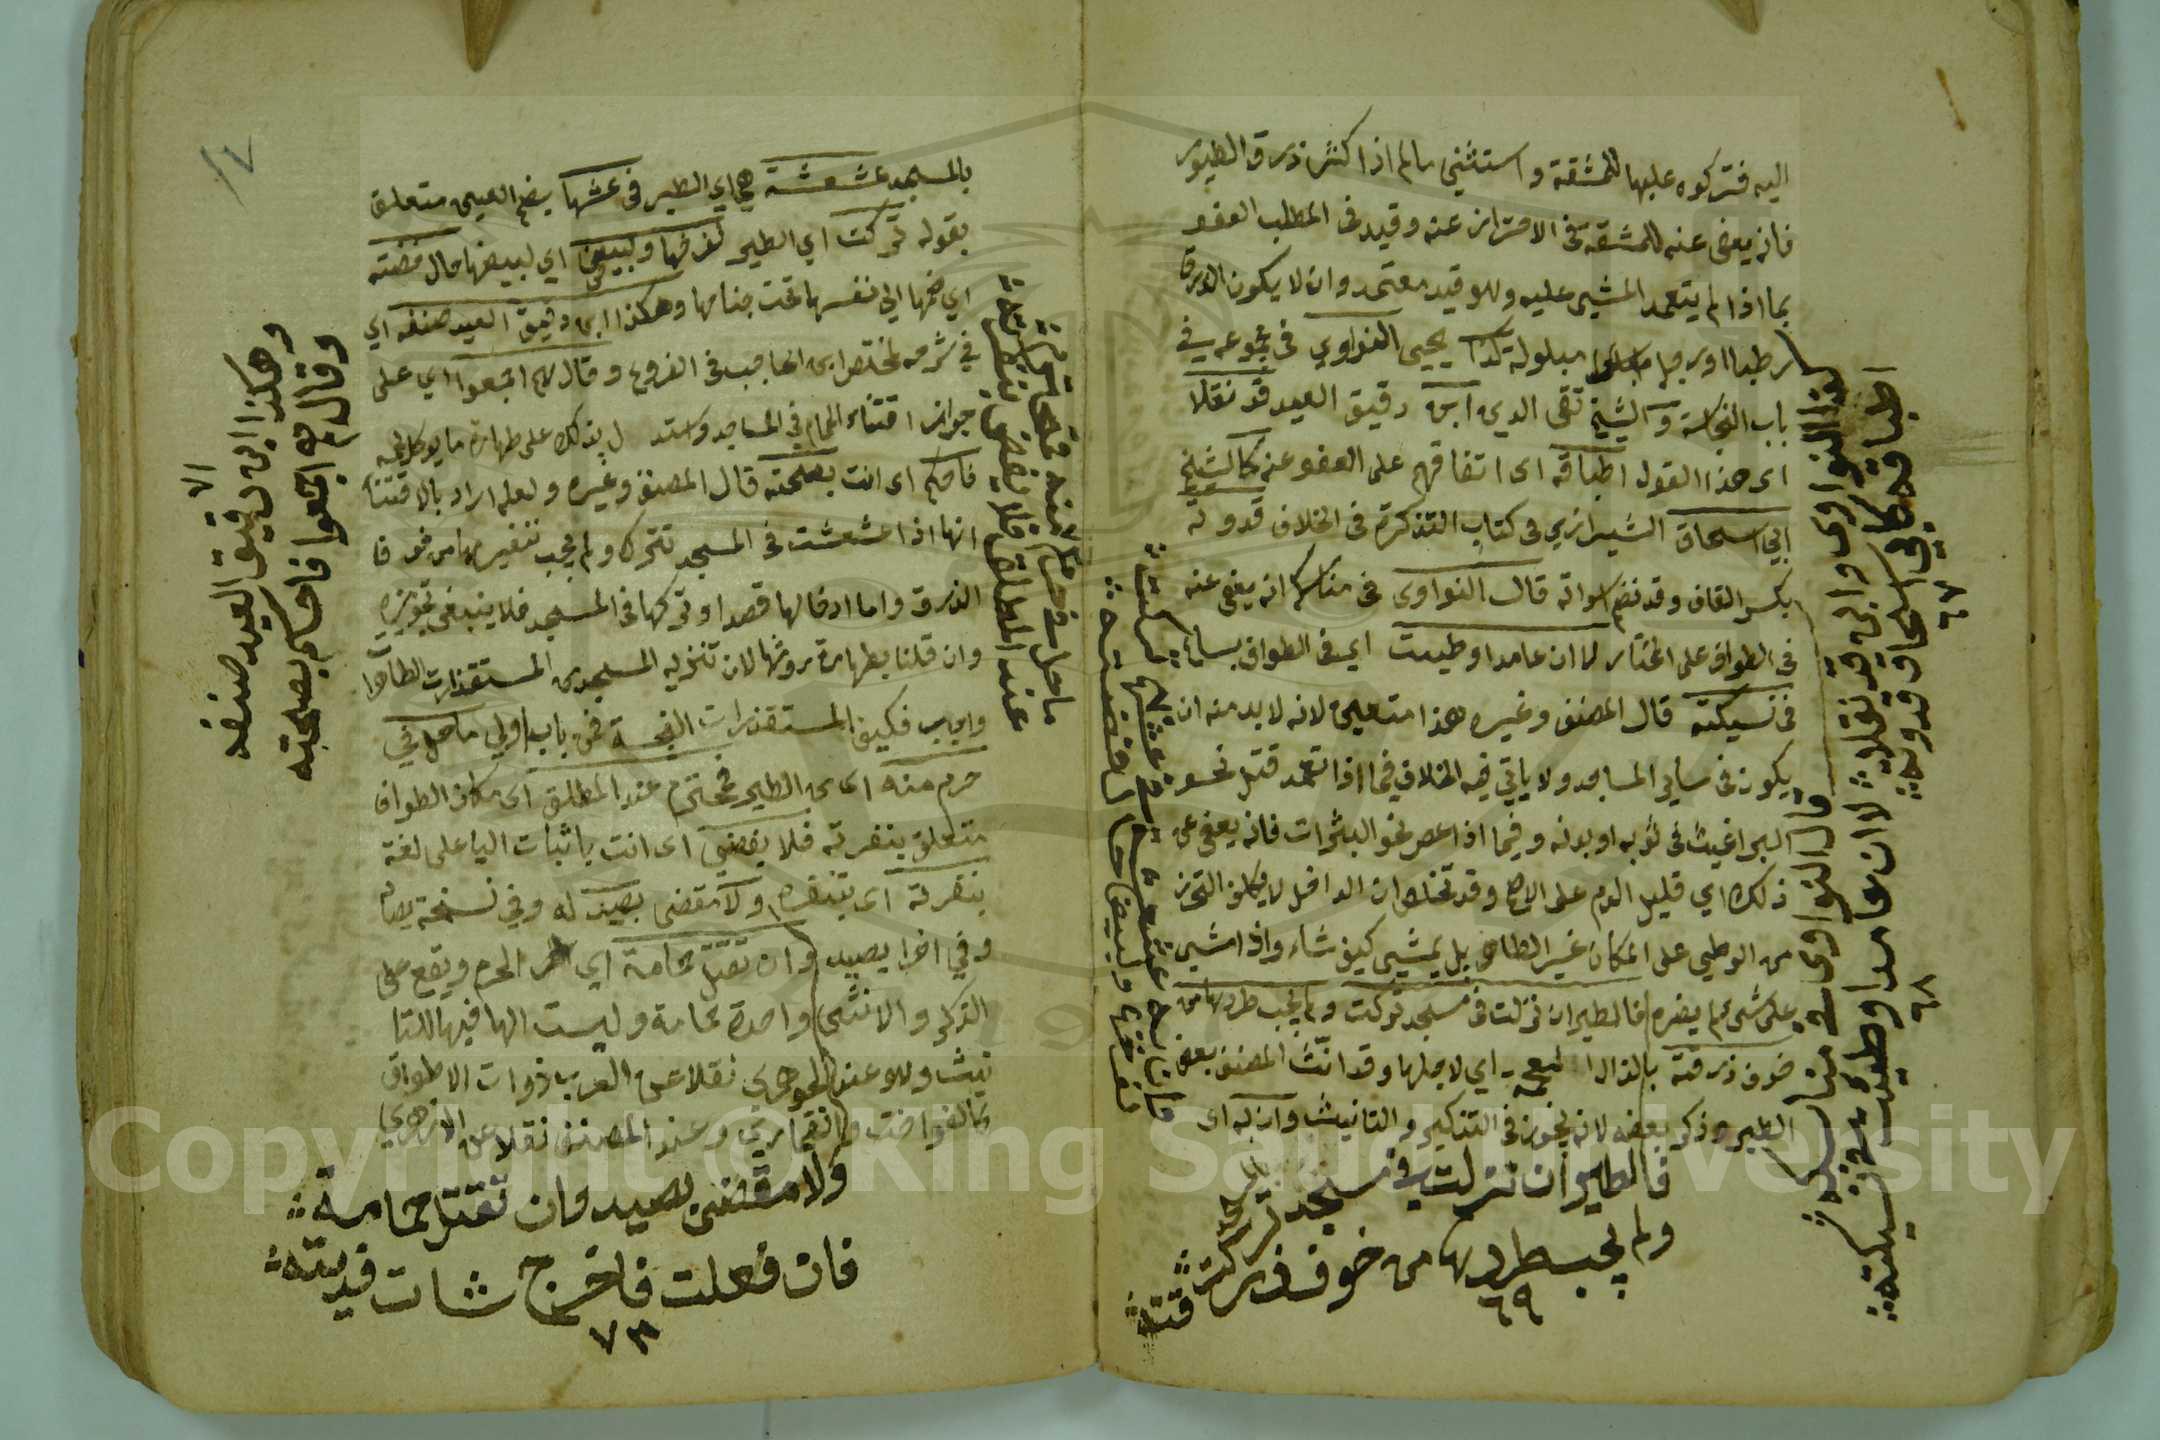 اليه فتركوه عليها للمشقة واستثنى مالم اذا كثر ذرق الطيور
فانه يعفى عنه للمشقة في الاحتراز عنه وقيد في المطلب العفو
بما اذا لم يتعمد المشي عليه وهو قيد معتمد وان لا يكون الذرق
رطبا او رجله مبلولة كذا يحيى النواوي في مجموعه في
باب النجاسة والشيخ تقي الدين ابن دقيق العيد قد نقلا
اى هذا القول اطباقه اى اتفاقهم على العفو عنه كالشيخ
ابي اسحاق الشيرازي في كتاب التذكرة في الخلاف قدوته
بكسر القاف وقد تضم قال النواوى في مناسكه انه يعفى عنه
في الطواف على المختار لا ان عامدا وطيت اى في الطواف
في نسيكته قال المصنف وغيره هذا متعين لانه لا بد منه ان
يكون في ساير المساجد ولا ياتي فيه الخلاف فيما اذا تعمد قتل نحو
البراغيث في ثوبه او بدنه وفيما اذا عصر نحو البثرات فانه يعفى عن
ذلك اي قليل الدم على الاصح وقد تخلص ان الداخل لا يكلف التحرز
من الوطي على المكان غير الطاهر بل يمشي كيف شاء واذا مشى
على شى لم يضره فالطير ان نزلت في مسجد تركت ولم يجب طردها من
خوف ذرقته بالذال المعجمة اي لاجلها وقد انّث المصنف بعض
الطير وذكر بعضه لانه يجوز في التذكير والتانيث وان به اى
فالطير ان نزلت في مسجد تركت
ولم يجب طردها من خوف ذرقته
٦٩
كذا النواوى وابن دقيق نقلا
اطباقه كابي اسحاق قدوته
٦٧
قال النواوى في مناسكه
لا ان عامدا وطيت في نسيكته
٦٨
وان به عشعشت في عشها تركت
لفرخها ولبيض حال حضنته
بالمسجد عشعشة هي اي الطير في عشها بضم العين متعلق
بقوله تركت اي الطير لفرخها ولبيض اي لبيضها حال حضنته
اي ضمها الى نفسها تحت جناحها وهكذا ابن دقيق العيد صنفه اي
في شرحه لمختصر ابن الحاجب في الفروع وقال هم اجمعوا اي على
جواز اقتناء الحمام في المساجد واستدل بذلك على طهارة ما يوكل لحمه
فاحكم اى انت بصحته قال المصنف وغيره ولعله اراد بالاقتناء
انها اذا عشعشت في المسجد تترك ولم يجب تنفيرها من خوف
الذرق واما ادخالها قصدا وتركها في المسجد فلا ينبغي تجويزه
وان قلنا بطهارة روثها لان تنزيه المسجد من المستقذرات الطاهرة
واجب فكيف المستقذرات النجسة فمن باب اولي ما حل في
حرم منه اى من الطير فمحترم عند المطلق اى مكان الطواف
متعلق بنفرته فلا يفضي اى انت باثبات اليا على لغة
بنفرته اى بتنفيره ولا مقضى بصيد له وفي نسخة
وفي اخرا بصيد وان تقتل حمامة اي الحرم ويقع على
الذكر والانثى واحدة حمامة وليست الها فيها للتا
نيث وهو عند الجوهرى نقلا عن العرب ذوات الاطواق
كالفواخت والقمارى وعند المصنف نقلا عن الازهري
وهكذا ابن دقيق العيد صنفه
وقال هم اجمعوا فاحكم بصحته
ما حل في حرم منه فمحترم
عند المطلق فلا يفضي بنفرته
ولا مقضى بصيد وان تقتل حمامة
فان فعلت فاخرج شات فديته
٧٣
Copyright © King Saud University